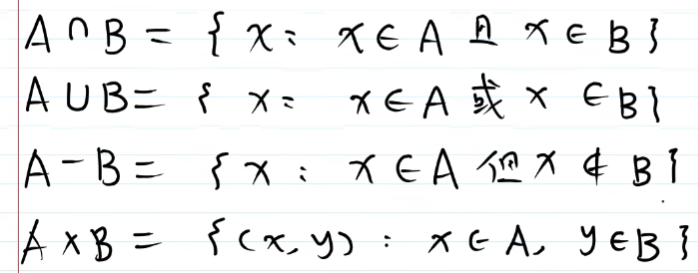 A ∩ B = { x : x ∈ A 且 x ∈ B }
A ∪ B = { x : x ∈ A 或 x ∈ B }
A - B = { x : x ∈ A 但 x ∉ B }
A × B = { (x, y) : x ∈ A, y ∈ B }